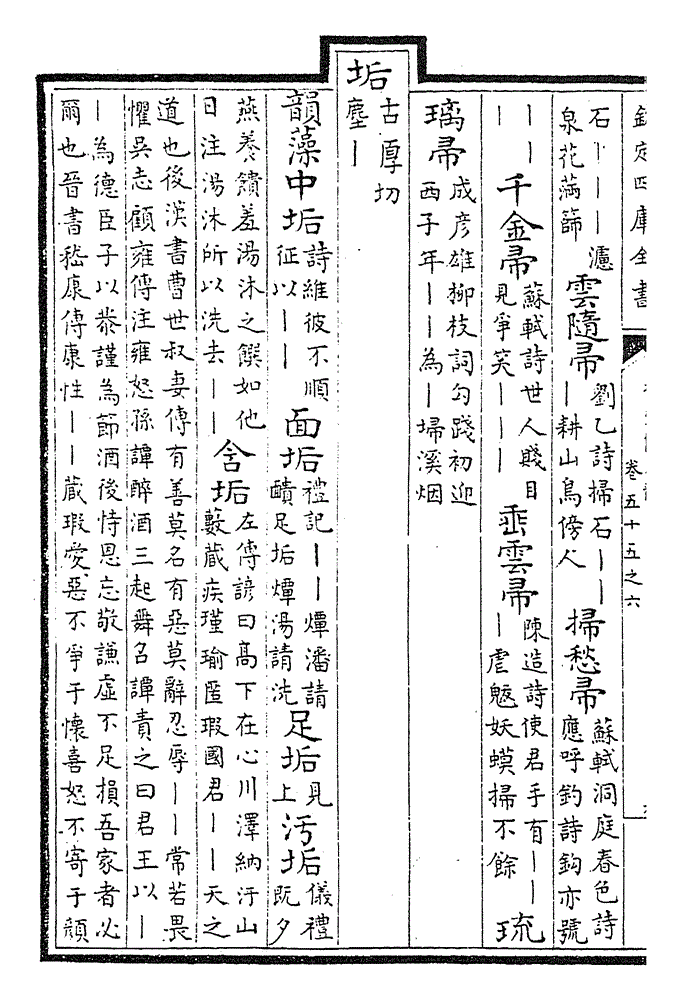 欽定四庫全書
卷五十五之六
石丨丨丨濾泉花滿篩 雲隨帚 劉乙詩掃石丨丨丨耕山鳥傍人 掃愁帚 蘇軾洞庭春色詩應呼釣詩鈎亦號
丨丨丨 千金帚 蘇軾詩世人賤目見爭笑丨丨丨 埀雲帚 陳造詩使君手有丨丨丨虐魃妖蟆掃不餘 琉
璃帚 成彦雄柳枝詞勾踐初迎西子年丨丨為丨埽溪烟
垢 古厚切塵丨
韻藻中垢 詩維彼不順征以丨丨 面垢 禮記丨丨燂潘請靧足垢燂湯請洗 足垢 見上 汚垢 儀禮既夕
燕養饋羞湯沐之饌如他日注湯沐所以洗去丨丨 含垢 左傳諺曰高下在心川澤納汙山藪藏疾瑾瑜匿瑕國君丨丨天之
道也後漢書曹世叔妻傳有善莫名有惡莫辭忍辱丨丨常若畏
懼吳志顧雍傳注雍怒孫譚醉酒三起舞召譚責之曰君王以丨
丨為德臣子以恭謹為節酒後恃恩忘敬謙虛不足損吾家者必
爾也晉書嵇康傳康性丨丨藏瑕愛惡不爭于懷喜怒不寄于顔